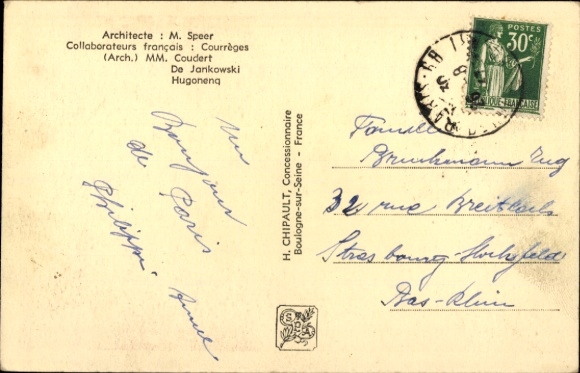 Architecte : M. Speer
Collaborateurs français : Courrèges
(Arch.) MM. Coudert
De Jankowski
Hugonenq
un
Bonjour
de Paris
Philippe
H. CHIPAULT, Concessionnaire
Boulogne-sur-Seine - France
POSTES
30c
Famille
32 rue
Strasbourg
Bas-Rhin